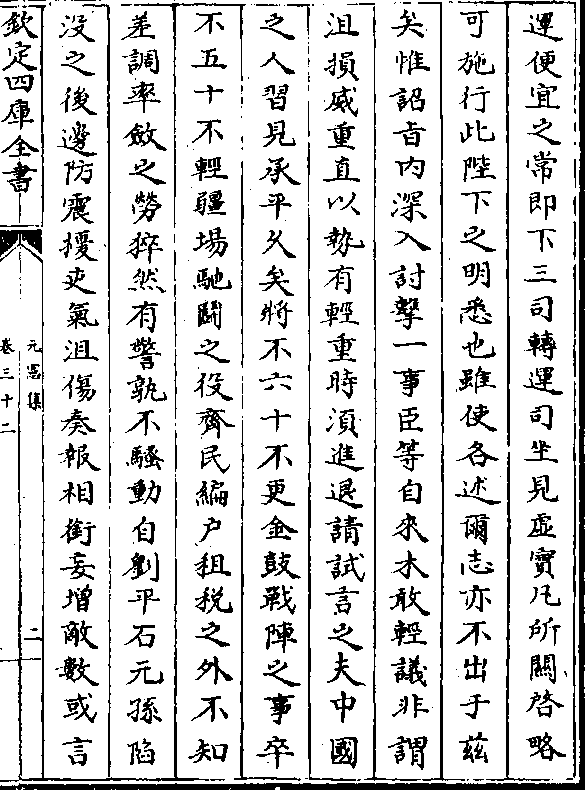 運便宜之常即下三司轉運司坐見虛實凡所關啓略
可施行此陛下之明悉也雖使各述爾志亦不出于兹
矣惟詔㫖内深入討擊一事臣等自來未敢輕議非謂
沮損威重直以埶有輕重時湏進退請試言之夫中國
之人習見承平乆矣將不六十不更金鼓戰陣之事卒
不五十不輕疆場馳鬭之役齊民編户租稅之外不知
差調率斂之勞猝然有警孰不騷動自劉平石元孫陷
没之後邊防震擾吏氣沮傷奏報相銜妄增敵數或言
欽定四庫全書
元憲集
卷三十二
二